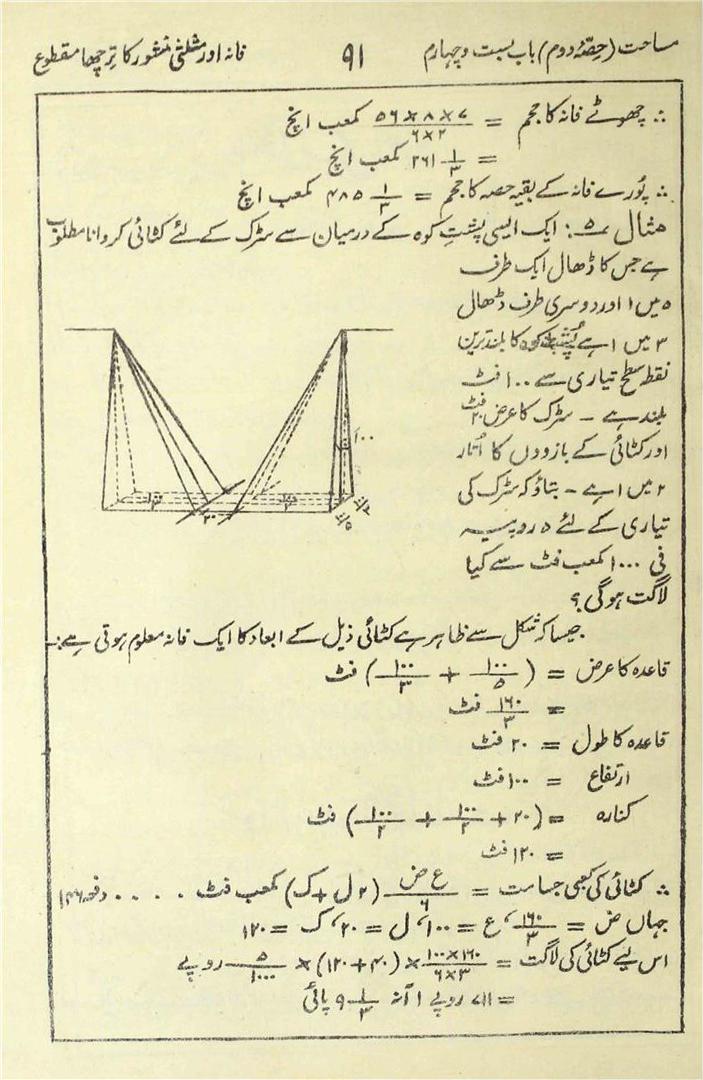 مساحت (حصۂ دوم) باب بست و چہارم ۹۱ فانہ اور مثلثی منشور کا ترچھا مقطوع
∴ چھوٹے فانہ کا حجم = \frac{۵۶×۸×۷}{۶×۲} مکعب انچ
= ۲۶۱ \frac{۱}{۳} مکعب انچ
∴ پورے فانہ کے بقیہ حصہ کا حجم = ۴۸۵ \frac{۱}{۳} مکعب انچ
مثال ۵: ایک ایسی پشتِ کوہ کے درمیان سے سڑک کے لئے کٹائی کروانا مطلوب
ہے جس کا ڈھال ایک طرف
۵ میں ۱ اور دوسری طرف ڈھال
۳ میں ۱ ہے پشتِ کوہ کا بلند ترین
نقطہ سطح تیاری سے ۱۰۰ فٹ
بلند ہے ۔ سڑک کا عرض ۲۰ فٹ
اور کٹائی کے بازووں کا اُتار
۲ میں ۱ ہے ۔ بتاؤ کہ سڑک کی
تیاری کے لئے ۵ روپیہ
فی ۱۰۰۰ مکعب فٹ سے کیا
لاگت ہوگی؟
۱۰۰
جیسا کہ شکل سے ظاہر ہے کٹائی ذیل کے ابعاد کا ایک فانہ معلوم ہوتی ہے:۔
قاعدہ کا عرض = (\frac{۱۰۰}{۵} + \frac{۱۰۰}{۳}) فٹ
= \frac{۱۶۰}{۳} فٹ
قاعدہ کا طول = ۲۰ فٹ
ارتفاع = ۱۰۰ فٹ
کنارہ = (۲۰ + \frac{۱۰۰}{۲} + \frac{۱۰۰}{۲}) فٹ
= ۱۲۰ فٹ
∴ کٹائی کی کعبی جسامت = \frac{ع ض}{۶} (۲ ل + ک) مکعب فٹ . . . . دفعہ ۱۴۶
جہاں ض = \frac{۱۶۰}{۳}، ع = ۱۰۰، ل = ۲۰، ک = ۱۲۰
اس لیے کٹائی کی لاگت = \frac{۱۰۰×۱۶۰}{۶×۳} × (۱۲۰+۴۰) × \frac{۵}{۱۰۰۰} روپے
= ۷۱۱ روپے ۱ آنہ ۹ \frac{۱}{۳} پائی